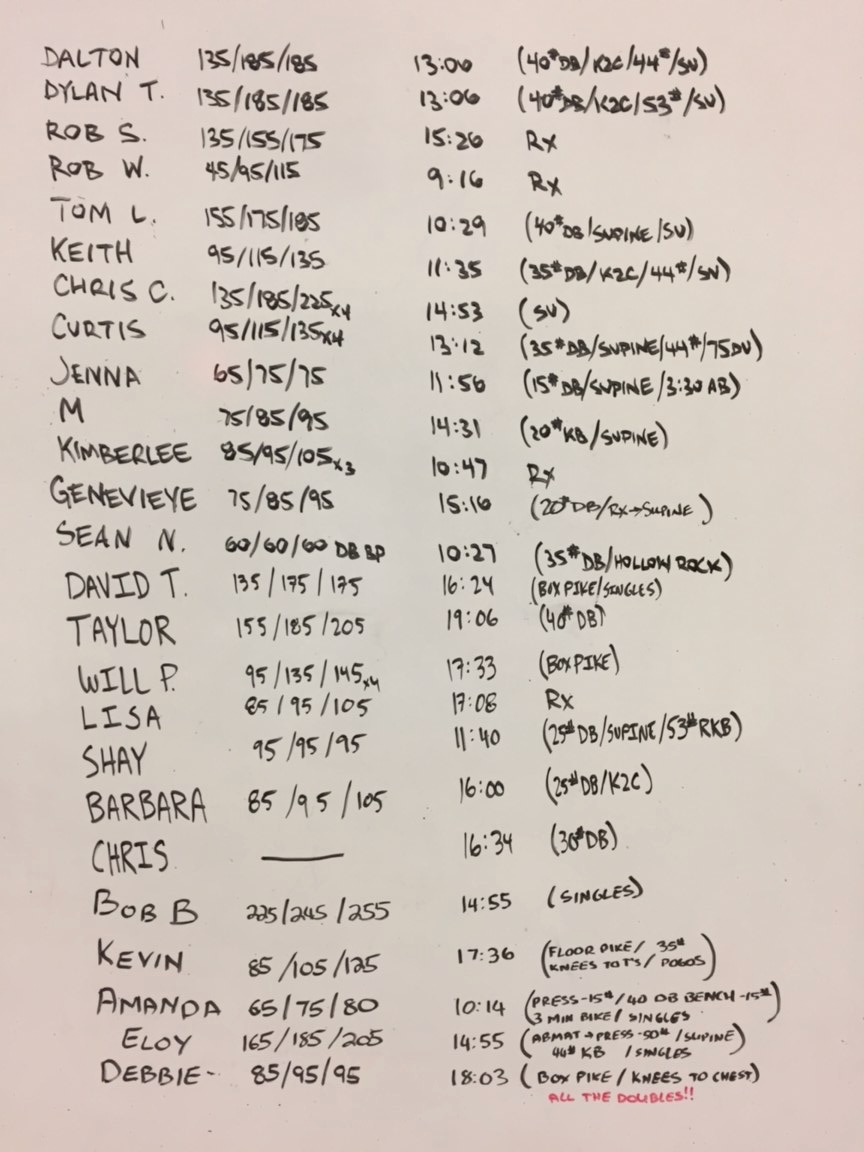 DALTON 135/185/185 13:00 (40#DB/K2C/44#/SU)
DYLAN T. 135/185/185 13:06 (40#DB/K2C/53#/SU)
ROB S. 135/155/175 15:26 Rx
ROB W. 45/95/115 9:16 Rx
TOM L. 155/175/185 10:29 (40#DB/SUPINE/SU)
KEITH 95/115/135 11:35 (35#DB/K2C/44#/SU)
CHRIS C. 135/185/225x4 14:53 (SU)
CURTIS 95/115/135x4 13:12 (35#DB/SUPINE/44#/75DU)
JENNA 65/75/75 11:56 (15#DB/SUPINE/3:30 AB)
M 75/85/95 14:31 (20#KB/SUPINE)
KIMBERLEE 85/95/105x3 10:47 Rx
GENEVIEVE 75/85/95 15:16 (20#DB/RX→SUPINE)
SEAN N. 60/60/60 DB BP 10:27 (35#DB/HOLLOW ROCK)
DAVID T. 135/175/175 16:24 (BOX PIKE/SINGLES)
TAYLOR 155/185/205 19:06 (40#DB)
WILL P. 95/135/145x4 17:33 (BOX PIKE)
LISA 85/95/105 17:08 Rx
SHAY 95/95/95 11:40 (25#DB/SUPINE/53#RKB)
BARBARA 85/95/105 16:00 (25#DB/K2C)
CHRIS — 16:34 (30#DB)
BOB B 225/245/255 14:55 (SINGLES)
KEVIN 85/105/125 17:36 (FLOOR PIKE/ 35#
KNEES TO T'S/ POGOS)
AMANDA 65/75/80 10:14 (PRESS-15#/40 DB BENCH-15#
3 MIN BIKE/ SINGLES)
ELOY 165/185/205 14:55 (ABMAT→PRESS-50#/SUPINE)
44# KB /SINGLES
DEBBIE- 85/95/95 18:03 (BOX PIKE/KNEES TO CHEST)
ALL THE DOUBLES!!